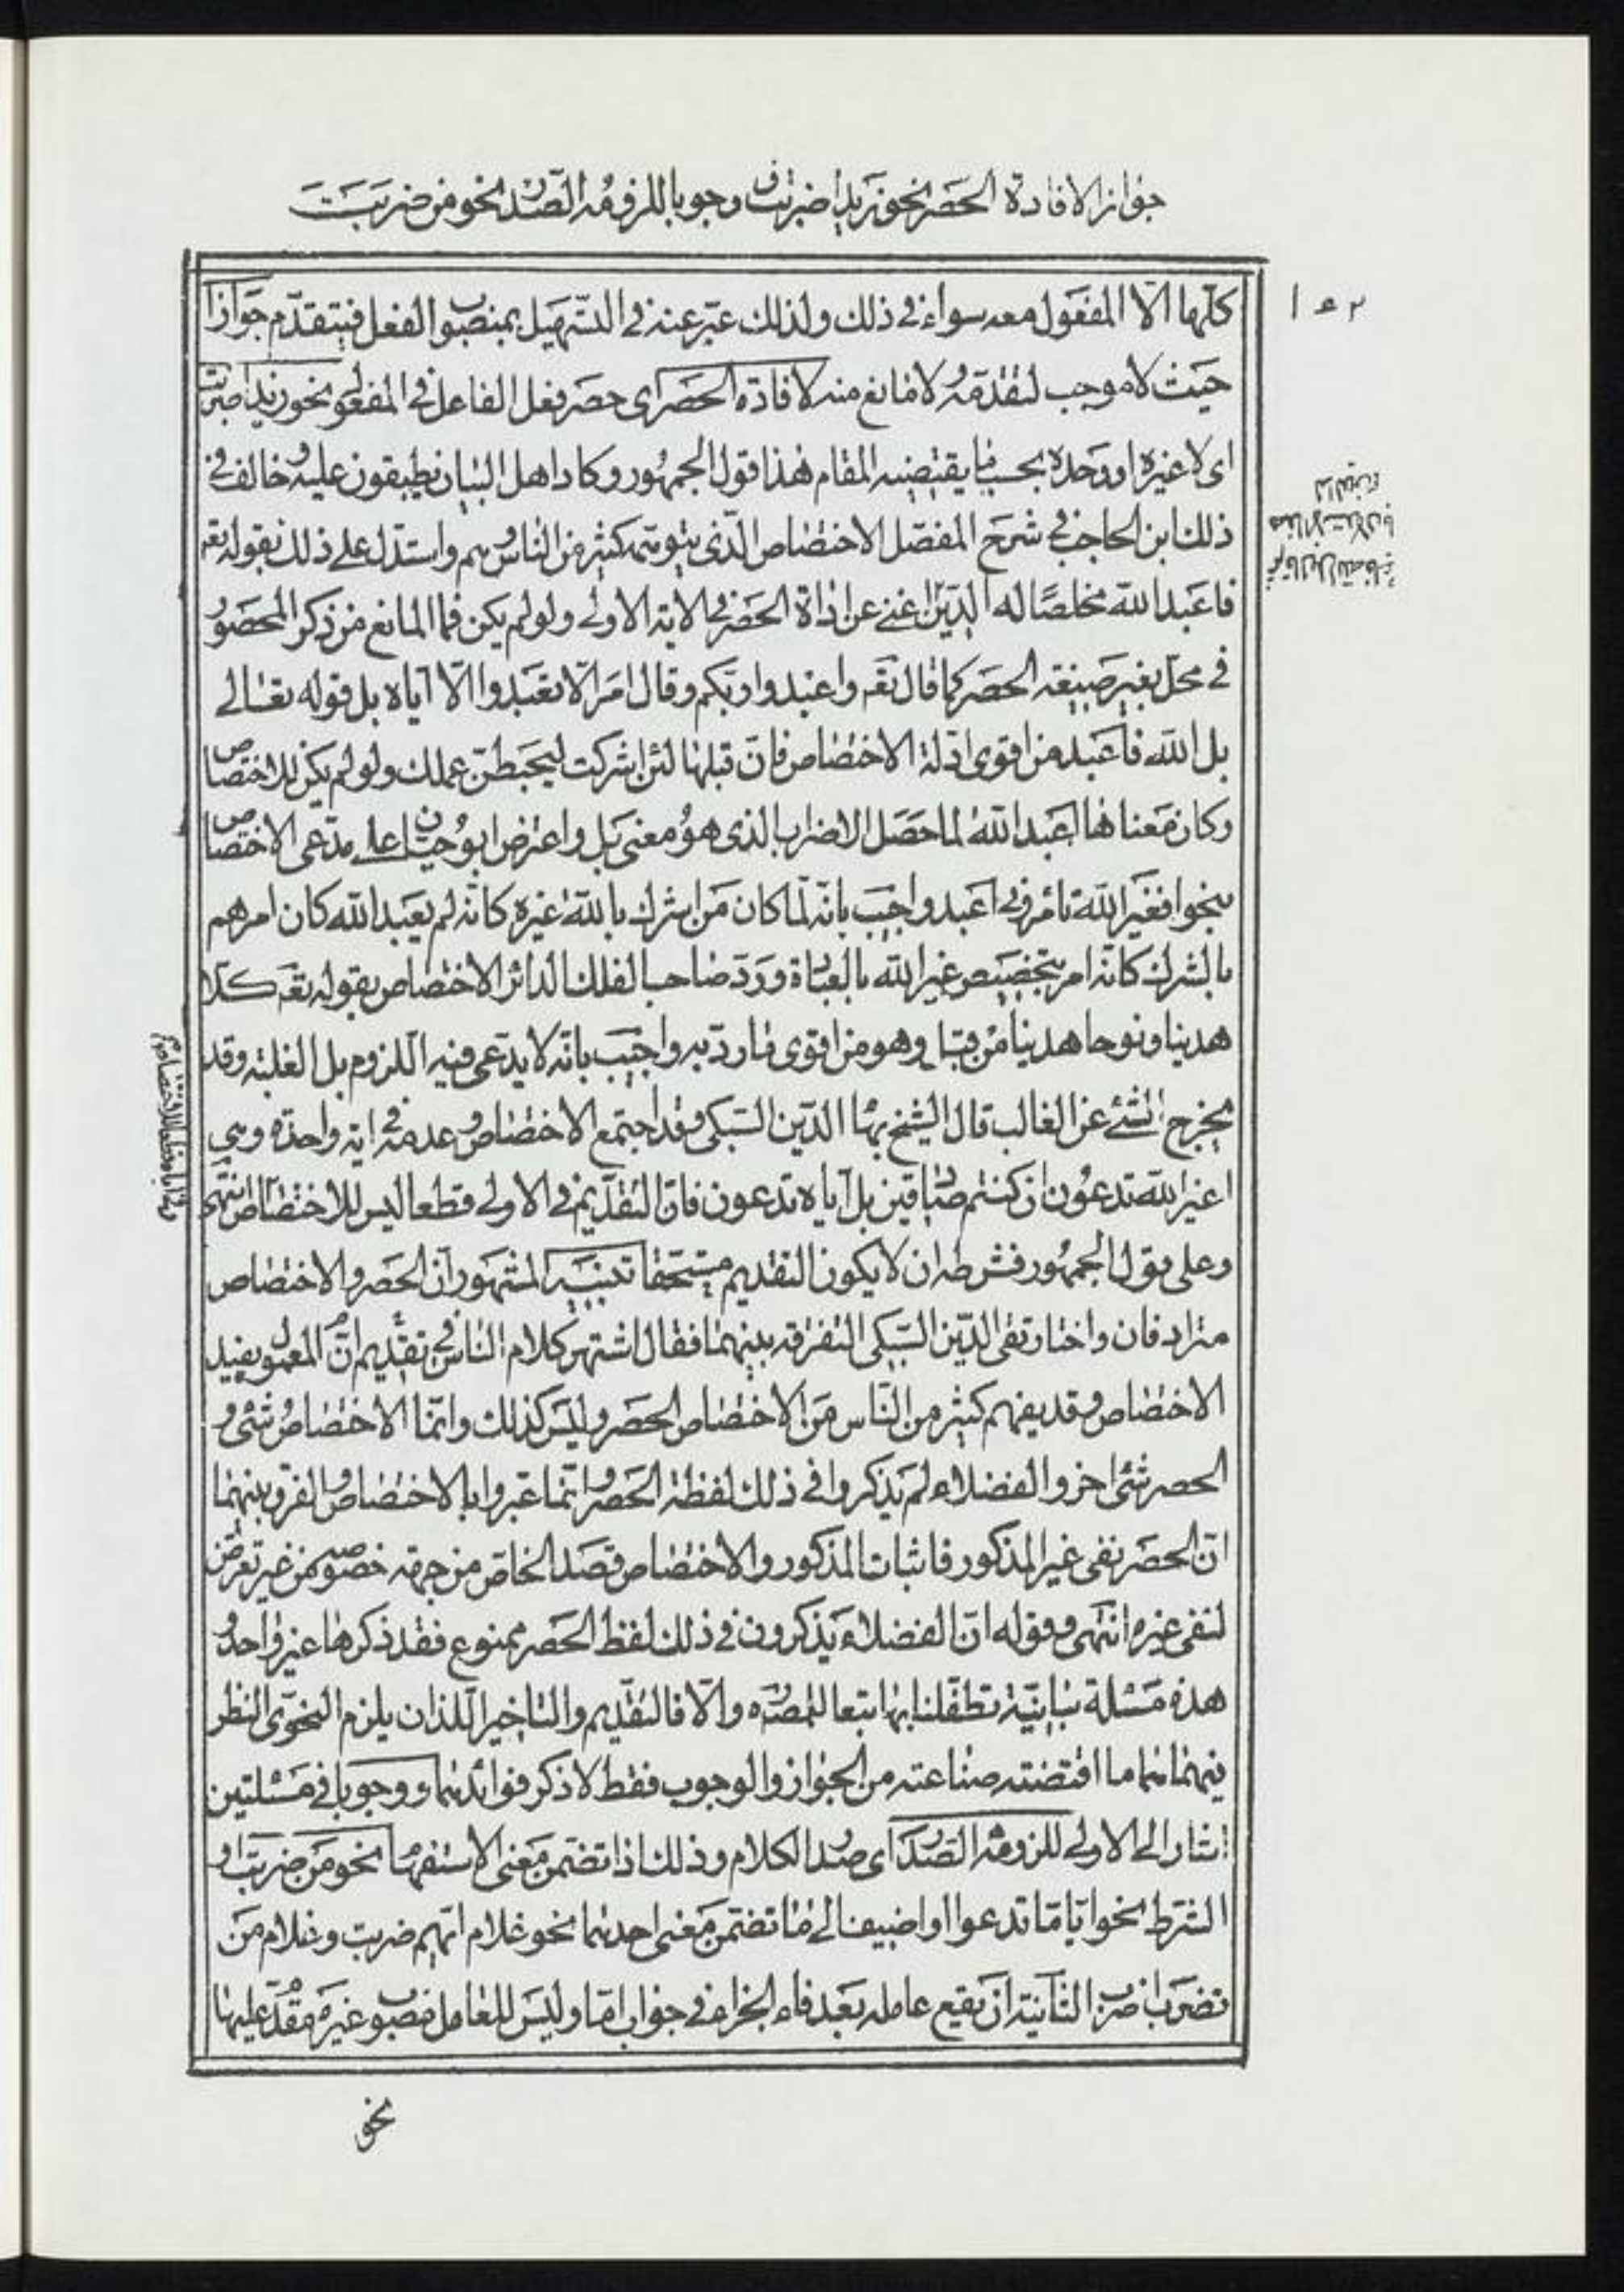 جوازا لافادة الحصر نحو زيدا ضربت ووجوبا للزومه الصدر نحو من ضربت
كلها الا المفعول معه سواء في ذلك ولذلك عبر عنه في التسهيل بمنصوب الفعل فيتقدم جوازا
حيث لا موجب لتقدمه ولا مانع منه لافادة الحصر اى حصر فعل الفاعل في المفعول نحو زيدا ضربت
اى لا غيره او وحده بحسب ما يقتضيه المقام هذا قول الجمهور وكاد اهل البيان يطبقون عليه وخالف في
ذلك ابن الحاجب في شرح المفصل الاختصاص الذى يتوهمه كثير من الناس وهم واستدل على ذلك بقوله تعه
فاعبد الله مخلصًا له الدين اغنى عن اداة الحصر في الاية الاولى ولو لم يكن فما المانع من ذكر المحصور
في محل بغير صيغة الحصر كما قال تعه واعبدوا ربكم وقال امر الا تعبدوا الا اياه بل قوله تعالى
بل الله فاعبد من اقوى ادلة الاختصاص فان قبلها لئن اشركت ليحبطن عملك ولو لم يكن للاختصاص
وكان معناها اعبد الله لما حصل الاضراب الذى هو معنى بل واعترض ابو حيان على مدعى الاختصاص
بنحو افغير الله تامرونى اعبد واجيب بانه لما كان من اشرك بالله غيره كانه لم يعبد الله كان امرهم
بالشرك كانه امر بتخصيص غير الله بالعبادة ورد صاحب الفلك الدائر الاختصاص بقوله تعه كلا
هدينا ونوحا هدينا من قبل وهو من اقوى ما رد به واجيب بانه لا يدعى فيه اللزوم بل الغلبة وقد
يخرج الشئ عن الغالب قال الشيخ بهاء الدين السبكى وقد اجتمع الاختصاص وعدمه في اية واحدة وهي
اغير الله تدعون ان كنتم صادقين بل اياه تدعون فان التقديم في الاولى قطعا ليس للاختصاص انتهى
وعلى قول الجمهور فشرطه ان لا يكون التقديم مستحقا تنبيه المشهور ان الحصر والاختصاص
مترادفان واختار تقى الدين السبكى التفرقة بينهما فقال اشتهر كلام الناس في تقديم ان المعمول يفيد
الاختصاص وقد يفهم كثير من الناس من الاختصاص الحصر وليس كذلك وانما الاختصاص شئ و
الحصر شئ اخر والفضلاء لم يذكروا في ذلك لفظة الحصر وانما عبروا بالاختصاص والفرق بينهما
ان الحصر نفى غير المذكور فاثبات المذكور والاختصاص قصد الخاص من جهة خصوصه من غير تعرض
لنفى غيره انتهى وقوله ان الفضلاء يذكرون في ذلك لفظ الحصر ممنوع فقد ذكرها غير واحد و
هذه مسئلة بيانية تطفلنا بها تبعا للمصنف ره والا فالتقديم والتاخير اللذان يلزم النحوى النظر
فيهما هما ما اقتضته صناعته من الجواز والوجوب فقط لا ذكر فوائدهما ووجوبا في مسئلتين
اشار الى الاولى للزومه الصدر اى صدر الكلام وذلك اذا تضمن معنى الاستفهام نحو من ضربت او
الشرط نحو ايا ما تدعوا او اضيف الى ما تضمن معنى احدهما نحو غلام ايهم ضربت وغلام من
تضرب اضرب الثانية ان يقع عامله بعد فاء الجزاء في جواب اما وليس للعامل منصوب غيره مقدم عليها
نحو